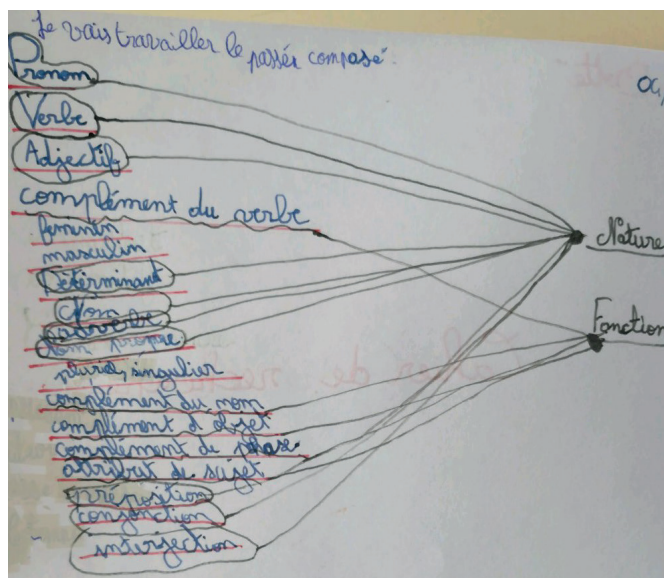 Je vais travailler le passér composé
Pronom
Verbe
Adjectif
complément du verbe
feminin
masculin
Déterminant
Nom
adverbe
Nom propre
pluriel, singulier
complément du nom
complément d'objet
complément de phrase
attribut de sujet
préposition
conjonction
interjection
Nature
Fonction